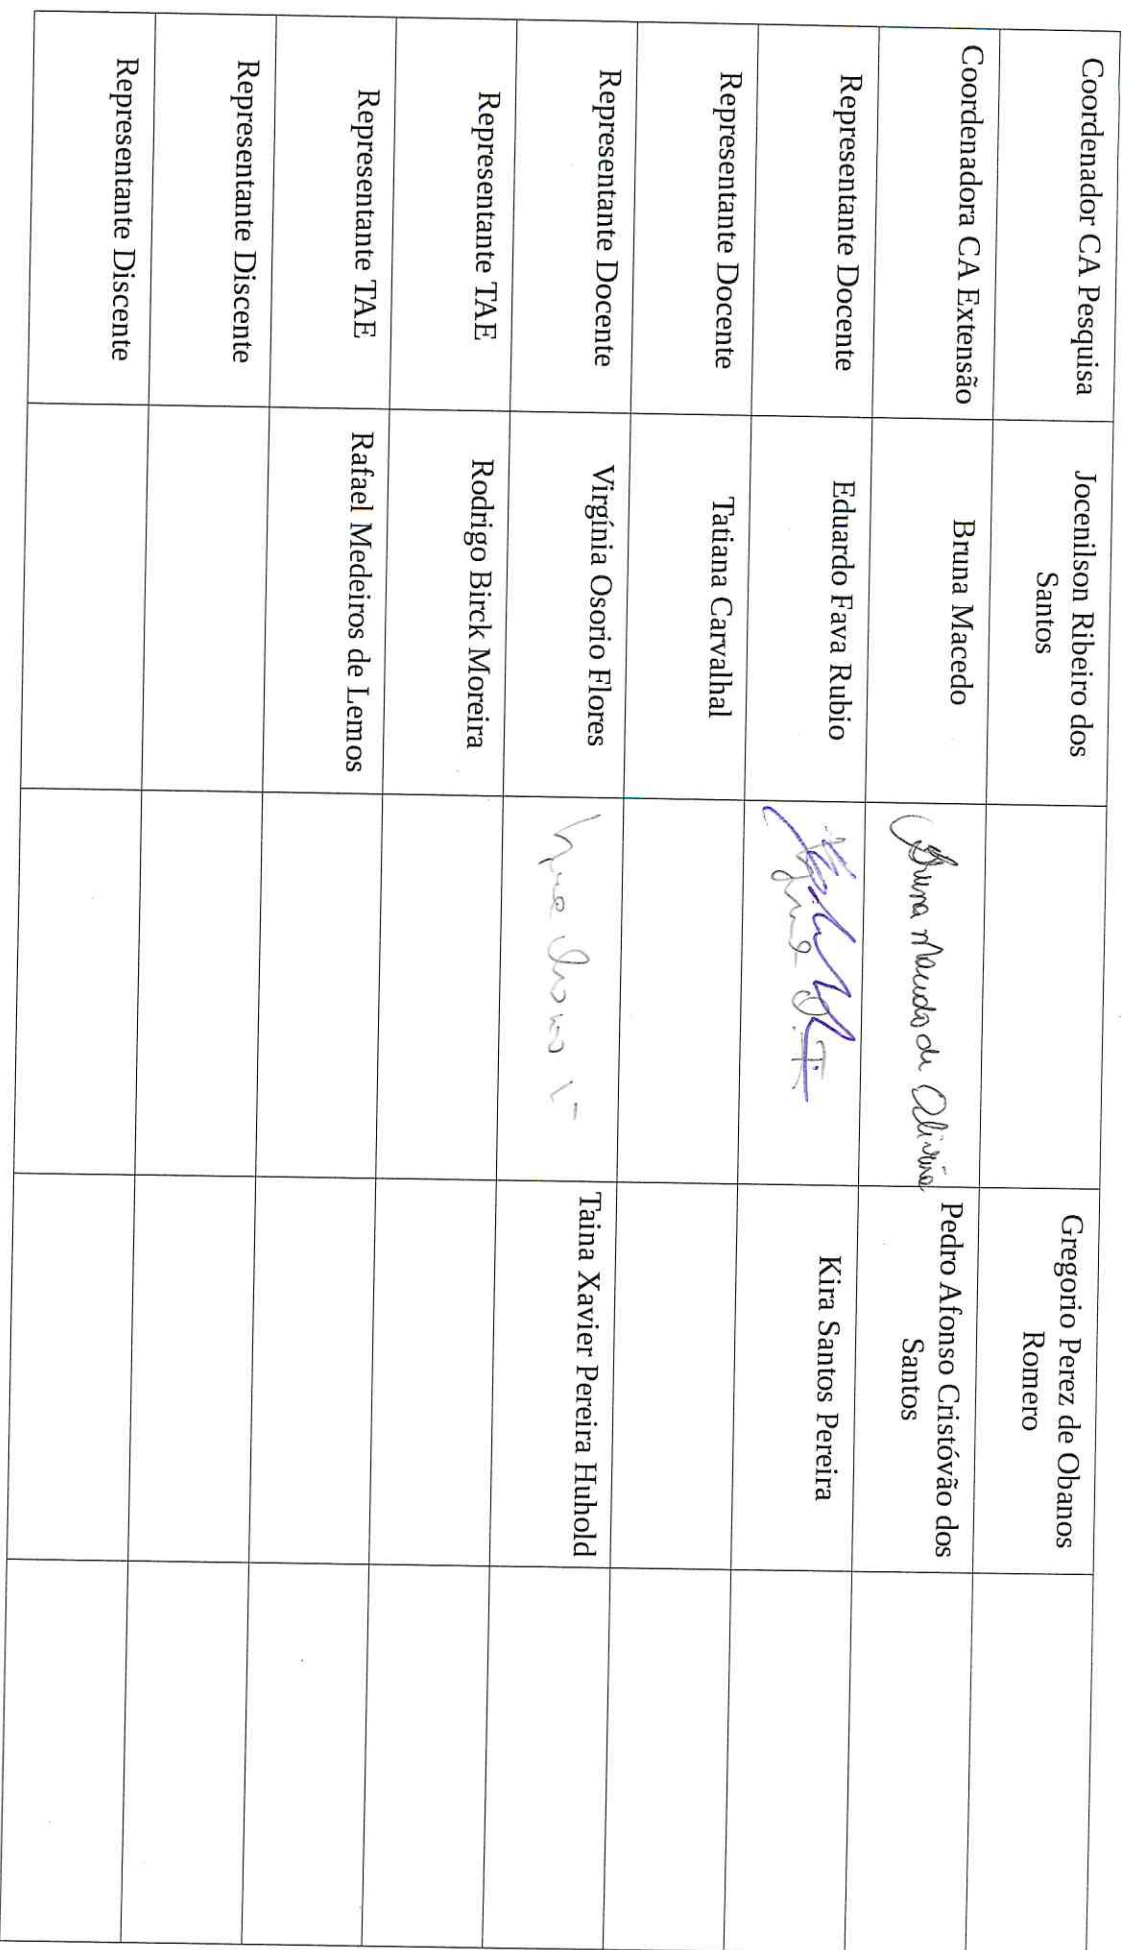 Coordenador CA Pesquisa
Jocenilson Ribeiro dos
Santos
Gregorio Perez de Obanos
Romero
Coordenadora CA Extensão
Bruna Macedo
Bruna Macedo de Oliveira
Pedro Afonso Cristóvão dos
Santos
Representante Docente
Eduardo Fava Rubio
Kira Santos Pereira
Representante Docente
Tatiana Carvalhal
Representante Docente
Virgínia Osorio Flores
Taina Xavier Pereira Huhold
Representante TAE
Rodrigo Birck Moreira
Representante TAE
Rafael Medeiros de Lemos
Representante Discente
Representante Discente